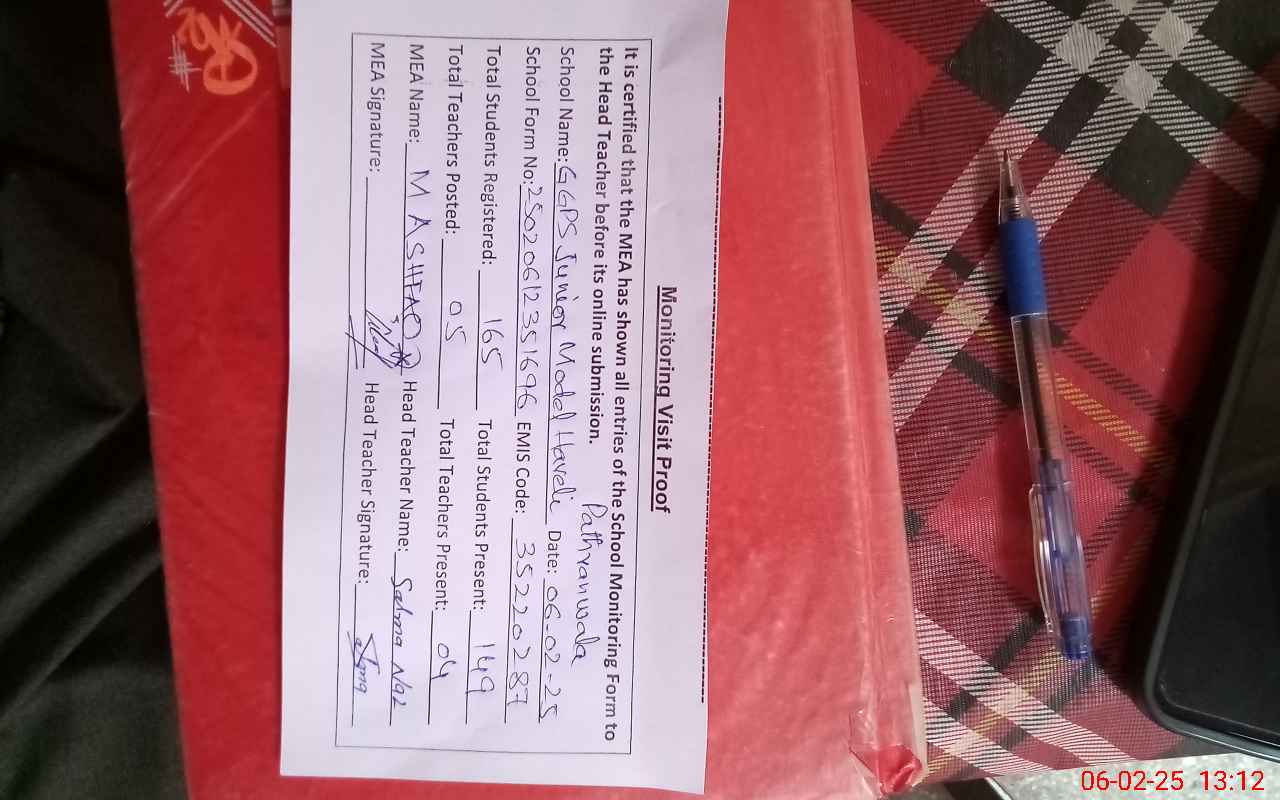 Monitoring Visit Proof
It is certified that the MEA has shown all entries of the School Monitoring Form to
the Head Teacher before its online submission. Pathranwala
School Name: GGPS Junior Model Haveli Date: 06-02-25
School Form No: 25020612351696 EMIS Code: 35220287
Total Students Registered: 165 Total Students Present: 149
Total Teachers Posted: 05 Total Teachers Present: 04
MEA Name: M ASHFAQ Head Teacher Name: Salma Naz
MEA Signature: Head Teacher Signature:
06-02-25 13:12